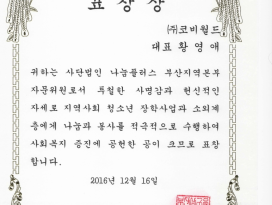 표 창 장
(주)코비월드
대표 황 영 애
귀하는 사단법인 나눔플러스 부산지역본부
자문위원로서 투철한 사명감과 헌신적인
자세로 지역사회 청소년 장학사업과 소외계
층에게 나눔과 봉사를 적극적으로 수행하여
사회복지 증진에 공헌한 공이 크므로 표창
합니다.
2016년 12월 16일